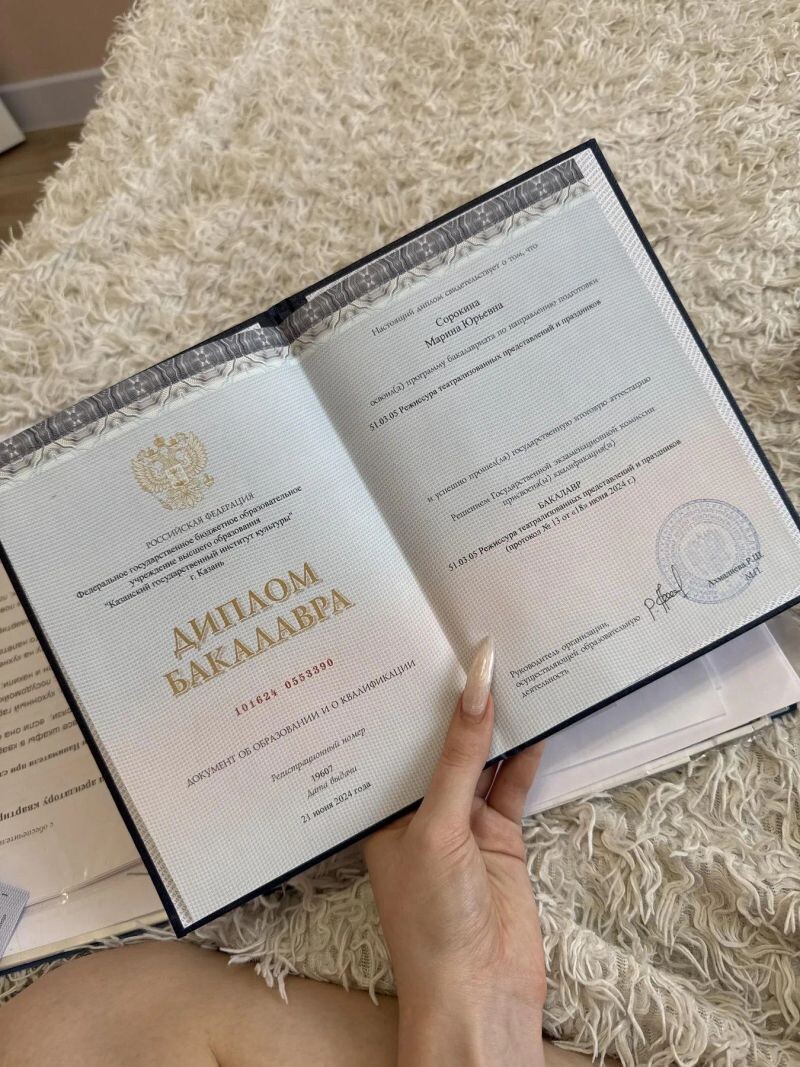 РОССИЙСКАЯ ФЕДЕРАЦИЯ
Федеральное государственное бюджетное образовательное
учреждение высшего образования
"Казанский государственный институт культуры"
г. Казань
ДИПЛОМ
БАКАЛАВРА
101624 0553390
ДОКУМЕНТ ОБ ОБРАЗОВАНИИ И О КВАЛИФИКАЦИИ
Регистрационный номер
19607
Дата выдачи
21 июня 2024 года
Настоящий диплом свидетельствует о том, что
Сорокина
Марина Юрьевна
освоил(а) программу бакалавриата по направлению подготовки
51.03.05 Режиссура театрализованных представлений и праздников
и успешно прошел(ла) государственную итоговую аттестацию
Решением Государственной экзаменационной комиссии
присвоена(ы) квалификация(и)
БАКАЛАВР
51.03.05 Режиссура театрализованных представлений и праздников
(протокол № 13 от «18» июня 2024 г.)
Руководитель организации,
осуществляющей образовательную
деятельность
Ахмадиева Р.Ш.
М.П.